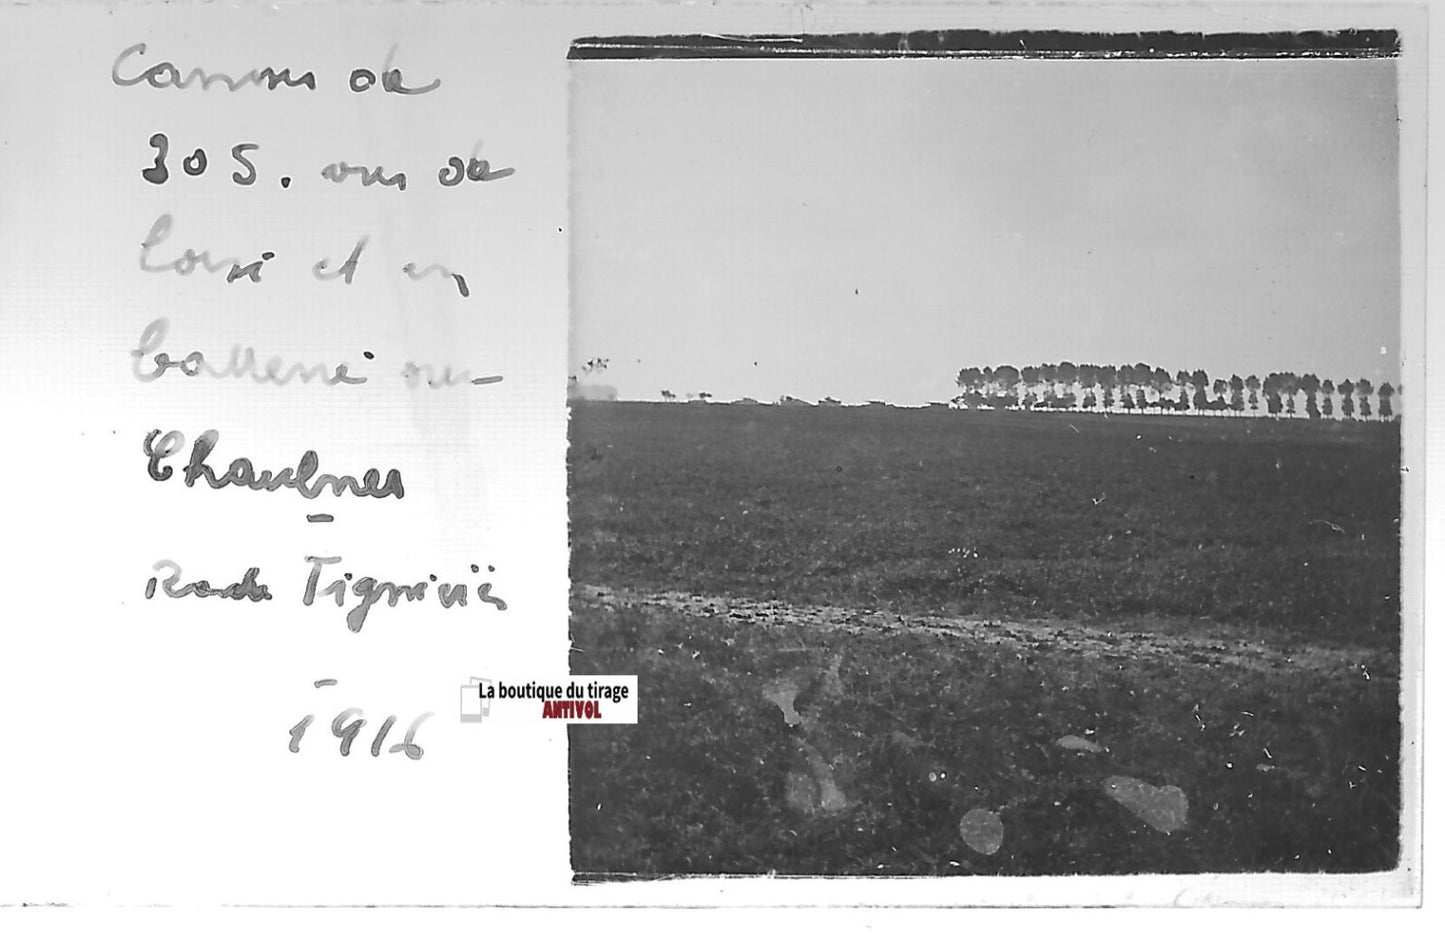 Canons de
305. vus de
loin et en
batterie sur
Chaulnes
Rte de
1916
La boutique du tirage
ANTIVOL